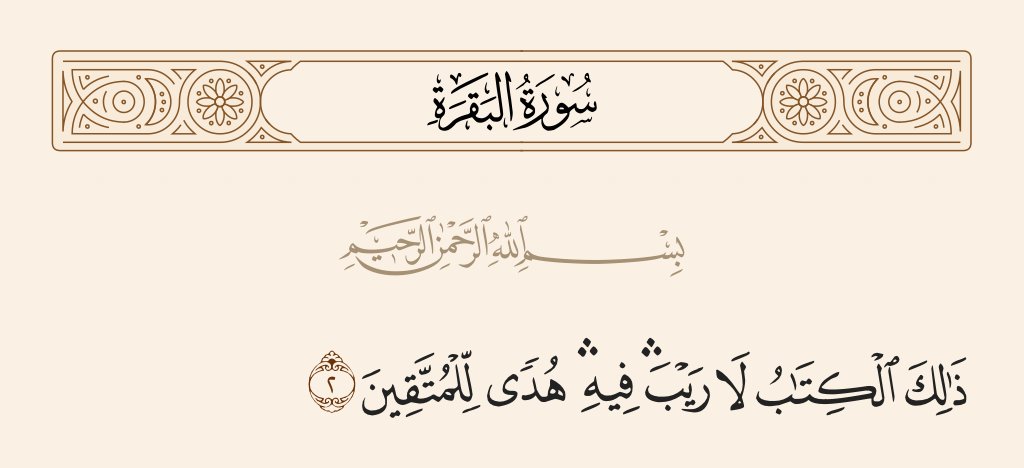 سُورَةُ البَقَرَةِ
بِسْمِ ٱللَّهِ ٱلرَّحْمَٰنِ ٱلرَّحِيمِ
ذَٰلِكَ ٱلْكِتَـٰبُ لَا رَيْبَ ۛ فِيهِ ۛ هُدًى لِّلْمُتَّقِينَ ٢